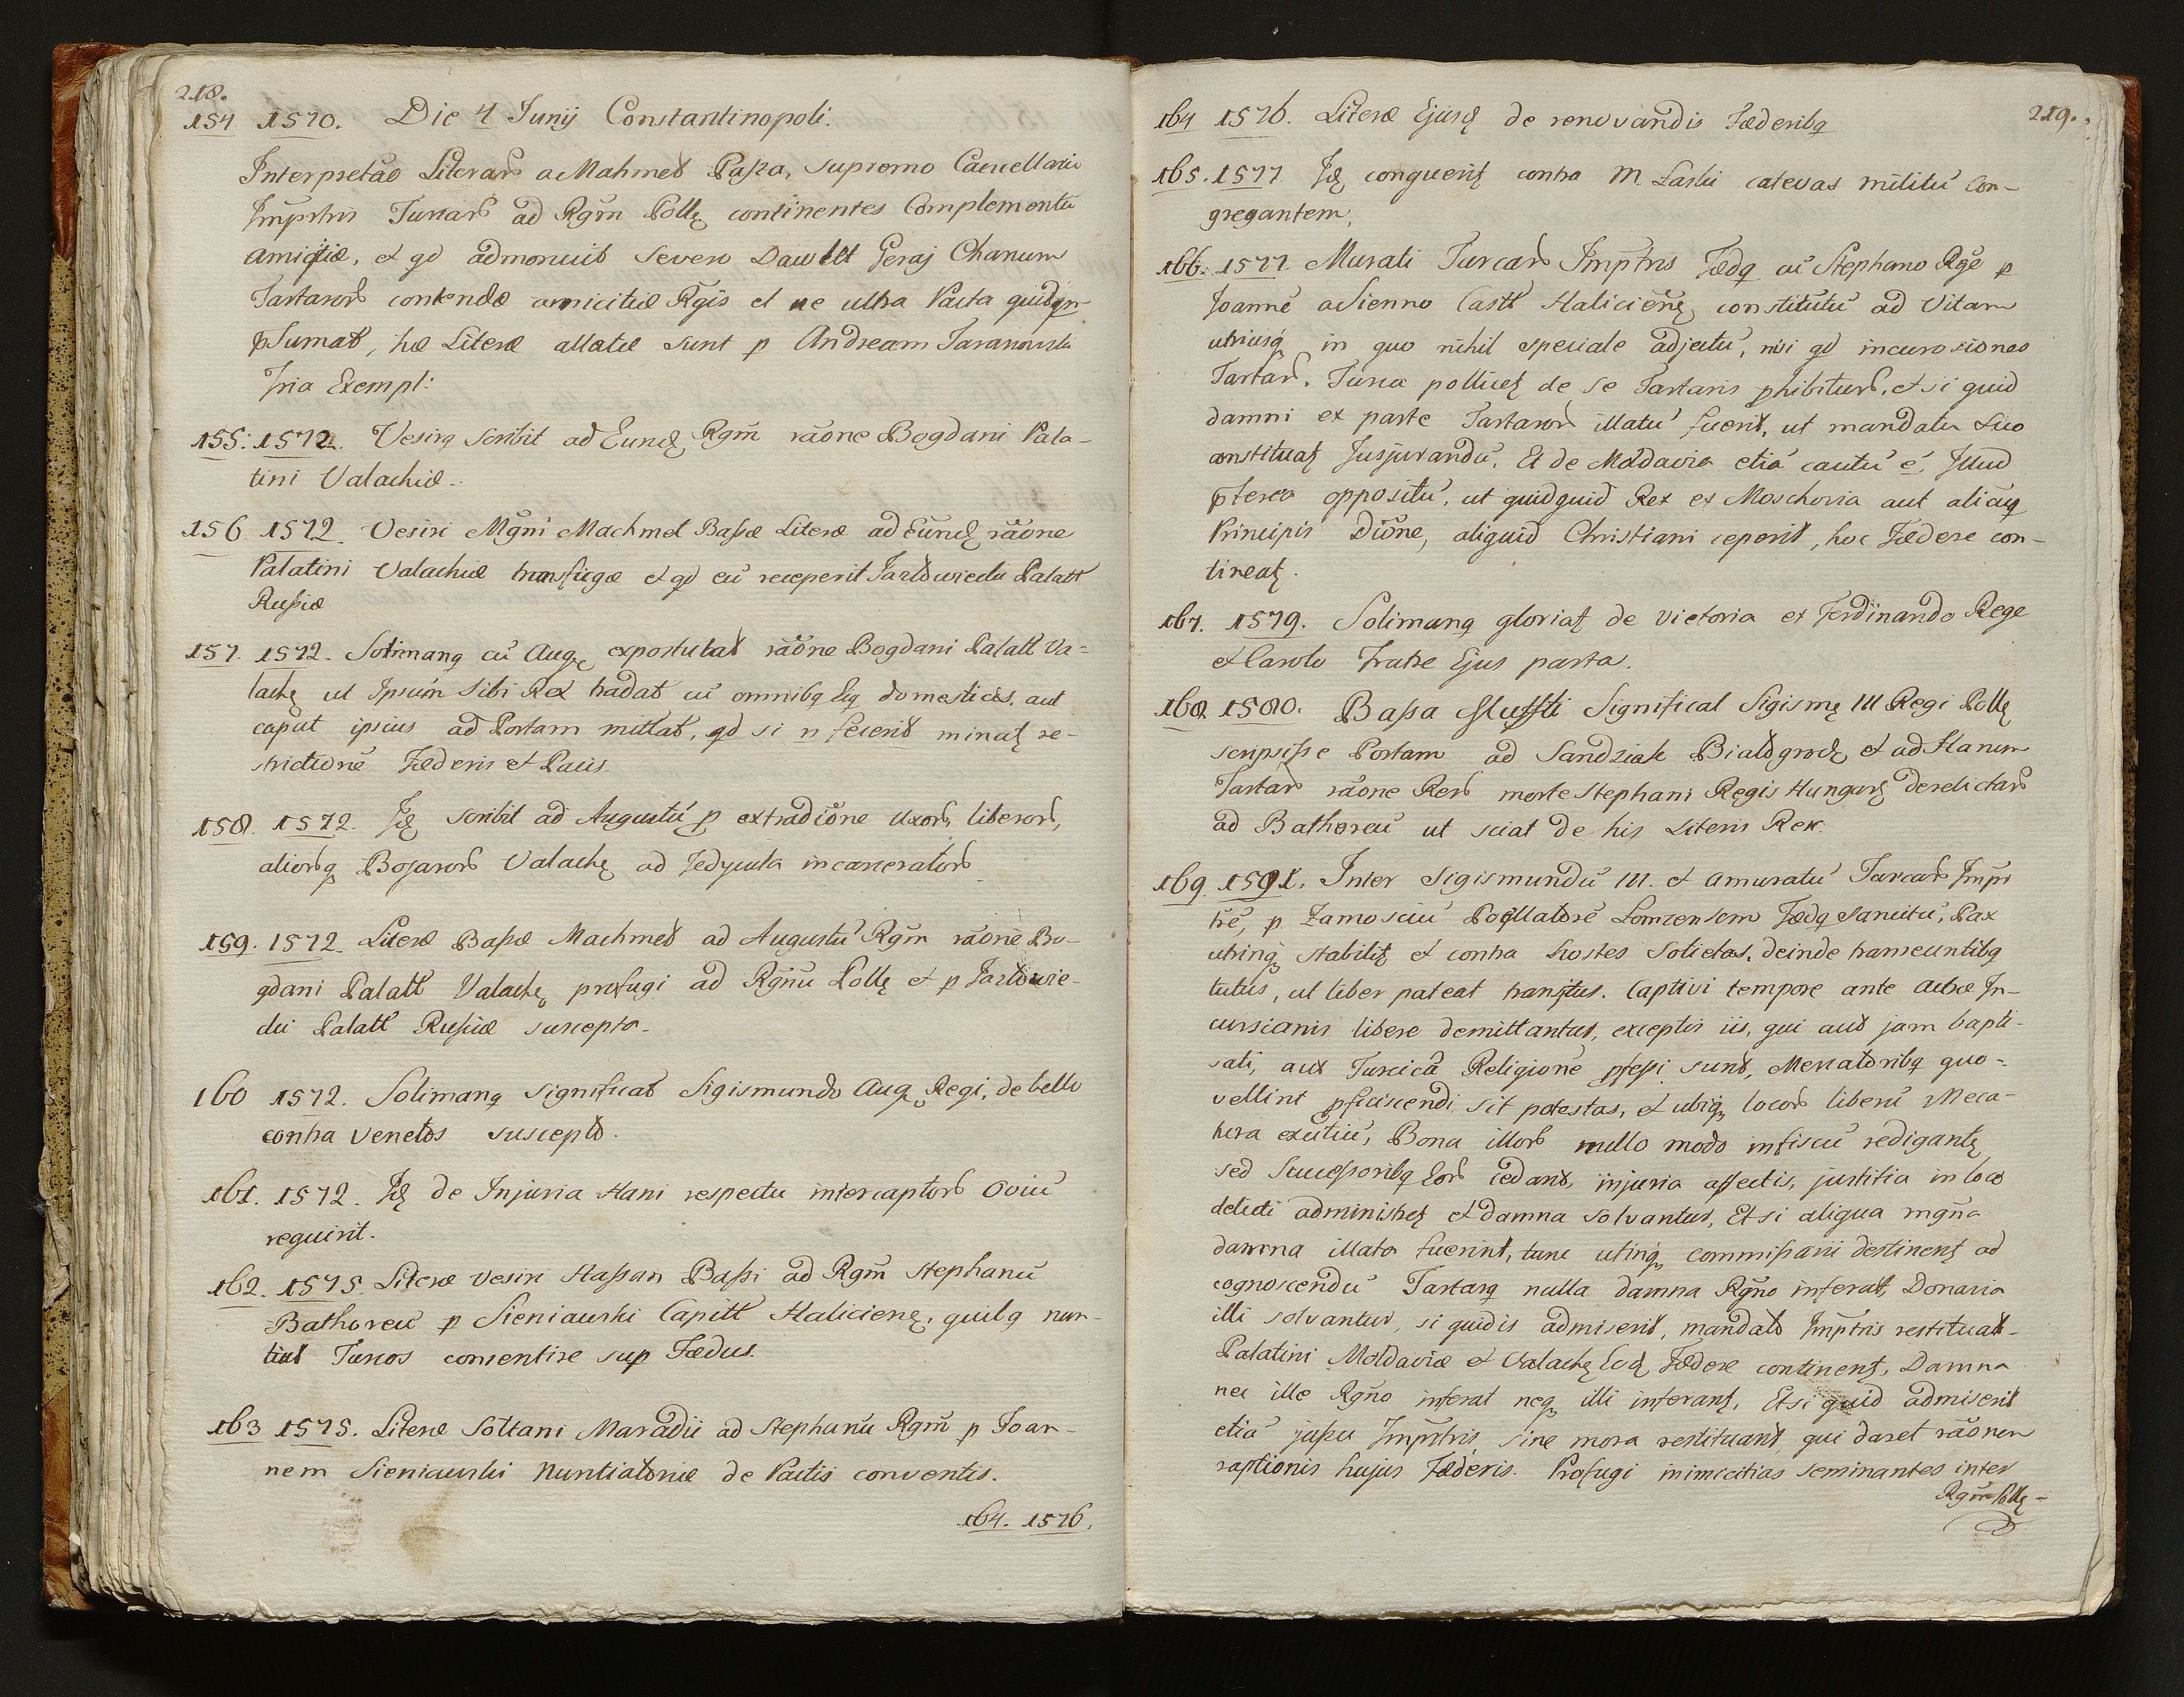 218.
154 1570. Die 4 Junij Constantinopoli.
Interpretāo Literarū a Mahmet Paßa, supremo Cancellario
Imprtris Turcarū ad Rgm Pollę continentes Complementū
amicitiæ, et qd admonuit severo Dawlet Geraj Chanum
Tartarorū contendæ amicitiæ Rgis et ne ultra Pacta quidqm
pſumat, hæ Literæ allatæ sunt p Andream Taranowski
Tria Exempl:
155. 1572. Vesirq scribit ad Eundę Rgm rāone Bogdani Pala-
tini Valachiæ.
156 1572. Vesiri Mgni Machmet Baßæ Literæ ad Eundę rāone
Palatini Valachiæ transfugæ et qd eū receperit Jazlowiecki Palatt
Rußiæ
157. 1572. Solimanq cū Augę expostulat rāone Bogdani Palatt Va-
lachę ut Ipsum sibi Rex tradat cū omnibq Ejq domesticis, aut
caput ipsius ad Portam mittat, qd si n fecerit minatę re-
strictionē Fœderis et Pacis.
158. 1572. Idę scribit ad Augustū p extradiōne Uxorū, liberorū,
aliorūq Bojarorū Valachę ad Jedycula incarceratorū
159. 1572. Literæ Baßæ Machmet ad Augustū Rgm rāone Bo-
gdani Palatt Valachę profugi ad Rgnū Pollę et p Jazlowie-
cki Palatt Rußiæ suscepto.
160 1572. Solimanq significat Sigismundo Augę Regi, de bello
contra Venetos suscepto.
161. 1572. Idę de Injuria Hani respectu interceptorū Oviū
requirit.
162. 1575. Literæ Vesiri Haßan Baßi ad Rgm Stephanū
Bathoreū p Sieniawski Capitt Halicienę, quibq nun-
tiat Turcos consentire sup Fœdus.
163 1575. Literæ Soltani Maradii ad Stephanū Rgm p Joan-
nem Sieniawski Nuntiatoriæ de Pactis conventis.
164. 1576.
219.
164 1576. Literæ Ejusdę de renovandis Fœderibq
165. 1577 Idę conqueritę contra M. Łaski catervas militū con-
gregantem.
166. 1577 Murati Turcarū Imprtris Fœdq cū Stephano Rge p
Joannē a Sienno Castt Halicienę, constitutū ad Vitam
utriusq in quo nihil speciale adjectū, nisi qd incursiones
Tartarū. Turca pollicetę de se Tartaris phibiturū, et si quid
damni ex parte Tartarorū illatū fuerit, ut mandatu suo
constituatę Jusjurandū. Et de Moldavia etiā cautū ē, Illud
pterea oppositū, ut quidquid Rex ex Moschovia aut alicujq
Principis Diōne, aliquid Christiani ceperit, hoc Fœdere con-
tineatę.
167. 1579. Solimanq gloriatę de victoria ex Ferdinando Rege
et Carolo Fratre Ejus parta.
168 1580. Baßa Mufti Significat Sigismę III Regi Pollę
scripsiße Portam ad Sandziak Bialogrodę et ad Hanum
Tartarū rāone Rerū morte Stephani Regis Hungarę derelictarū
ad Bathoreū ut sciat de his Literis Rex.
169 1591. Inter Sigismundū III. et Amuratū Turcarū Impr
trē, p Zamosciū Pocillatorē Lomzensem Fœdq sancitū, Pax
utrinq stabilitę et contra hostes Societas, deinde transeuntibq
tutus, ut liber pateat transitus. Captivi tempore ante actæ In-
cursionis libere demittantur, exceptis iis, qui aut jam bapti-
sati, aut Turcicā Religionē pfeßi sunt, Mercatoribq quo-
vellint pficiscendi sit potestas, et ubiq locorū liberū Merca-
tura exeritiū, Bona illorū nullo modo in fiscū redigantę
sed Succeßoribq Eorū cedant, injuria affectis, justitia in loco
delicti administretę et damna solvantur, Et si aliqua mgna
damna illata fuerint, tunc utinq commißarii destinentę ad
cognoscendū Tartarq nulla damna Rgno inferat, Donaria
illi solvantur, si quid is admiserit, mandato Imprtris restituat.
Palatini Moldaviæ et Valachę Eodę Fœdere continentę, Damna
nec ille Rgno inferat neq illi inferantę, Et si quid admiserit
etiā jußu Imprtris sine mora restituant, qui daret rāonem
raptionis hujus Fœderis. Profugi inimicitias seminantes inter
Rgm Pollę